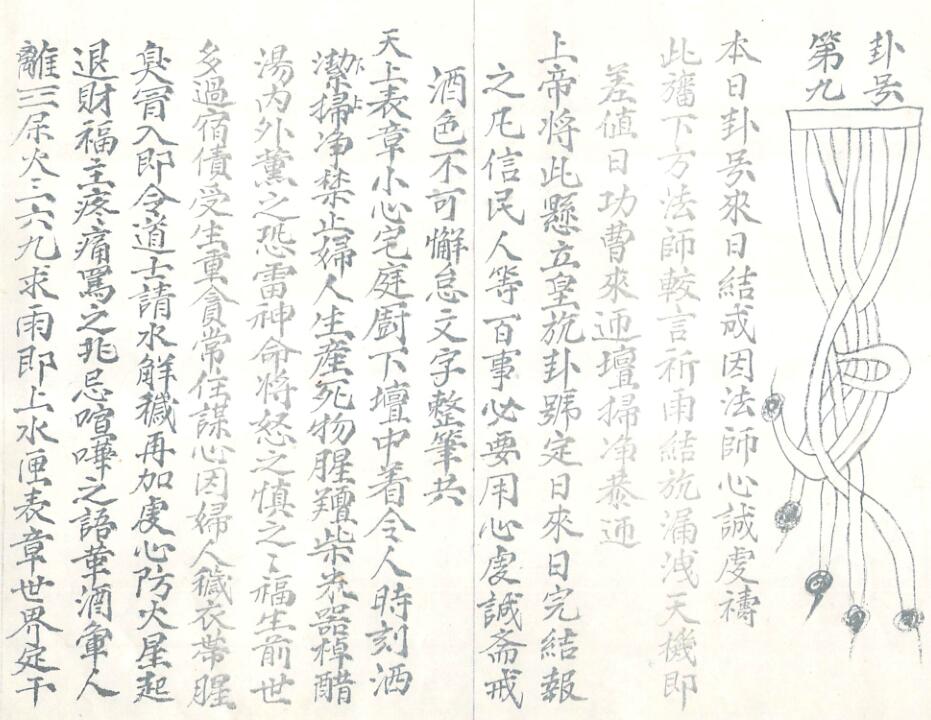 卦号
第九
本日卦号來日結成因法師心誠虔禱
此旛下方法師較言祈雨結旒漏洩天機即
差值日功曹來迊壇掃净恭迊
上帝将此懸立皇旒卦號定日來日完結報
之凡信民人等百事必要用心虔誠斎戒
酒色不可懈怠文字整筆共
天上表章小心宅庭廚下壇中着令人時刻洒
潔掃净禁止婦人生產死物腥羶柴米器棹醋
湯内外薰之恐雷神命将怒之慎之〻福生前世
多過宿債受生重貪常住謀心因婦人穢衣帶腥
臭冐入即令道士請水解穢再加虔心防火星起
退財福主疼痛罵之非忌喧嘩之語葷酒軰人
離三尿火三六九求雨即上水匣表章世界定干